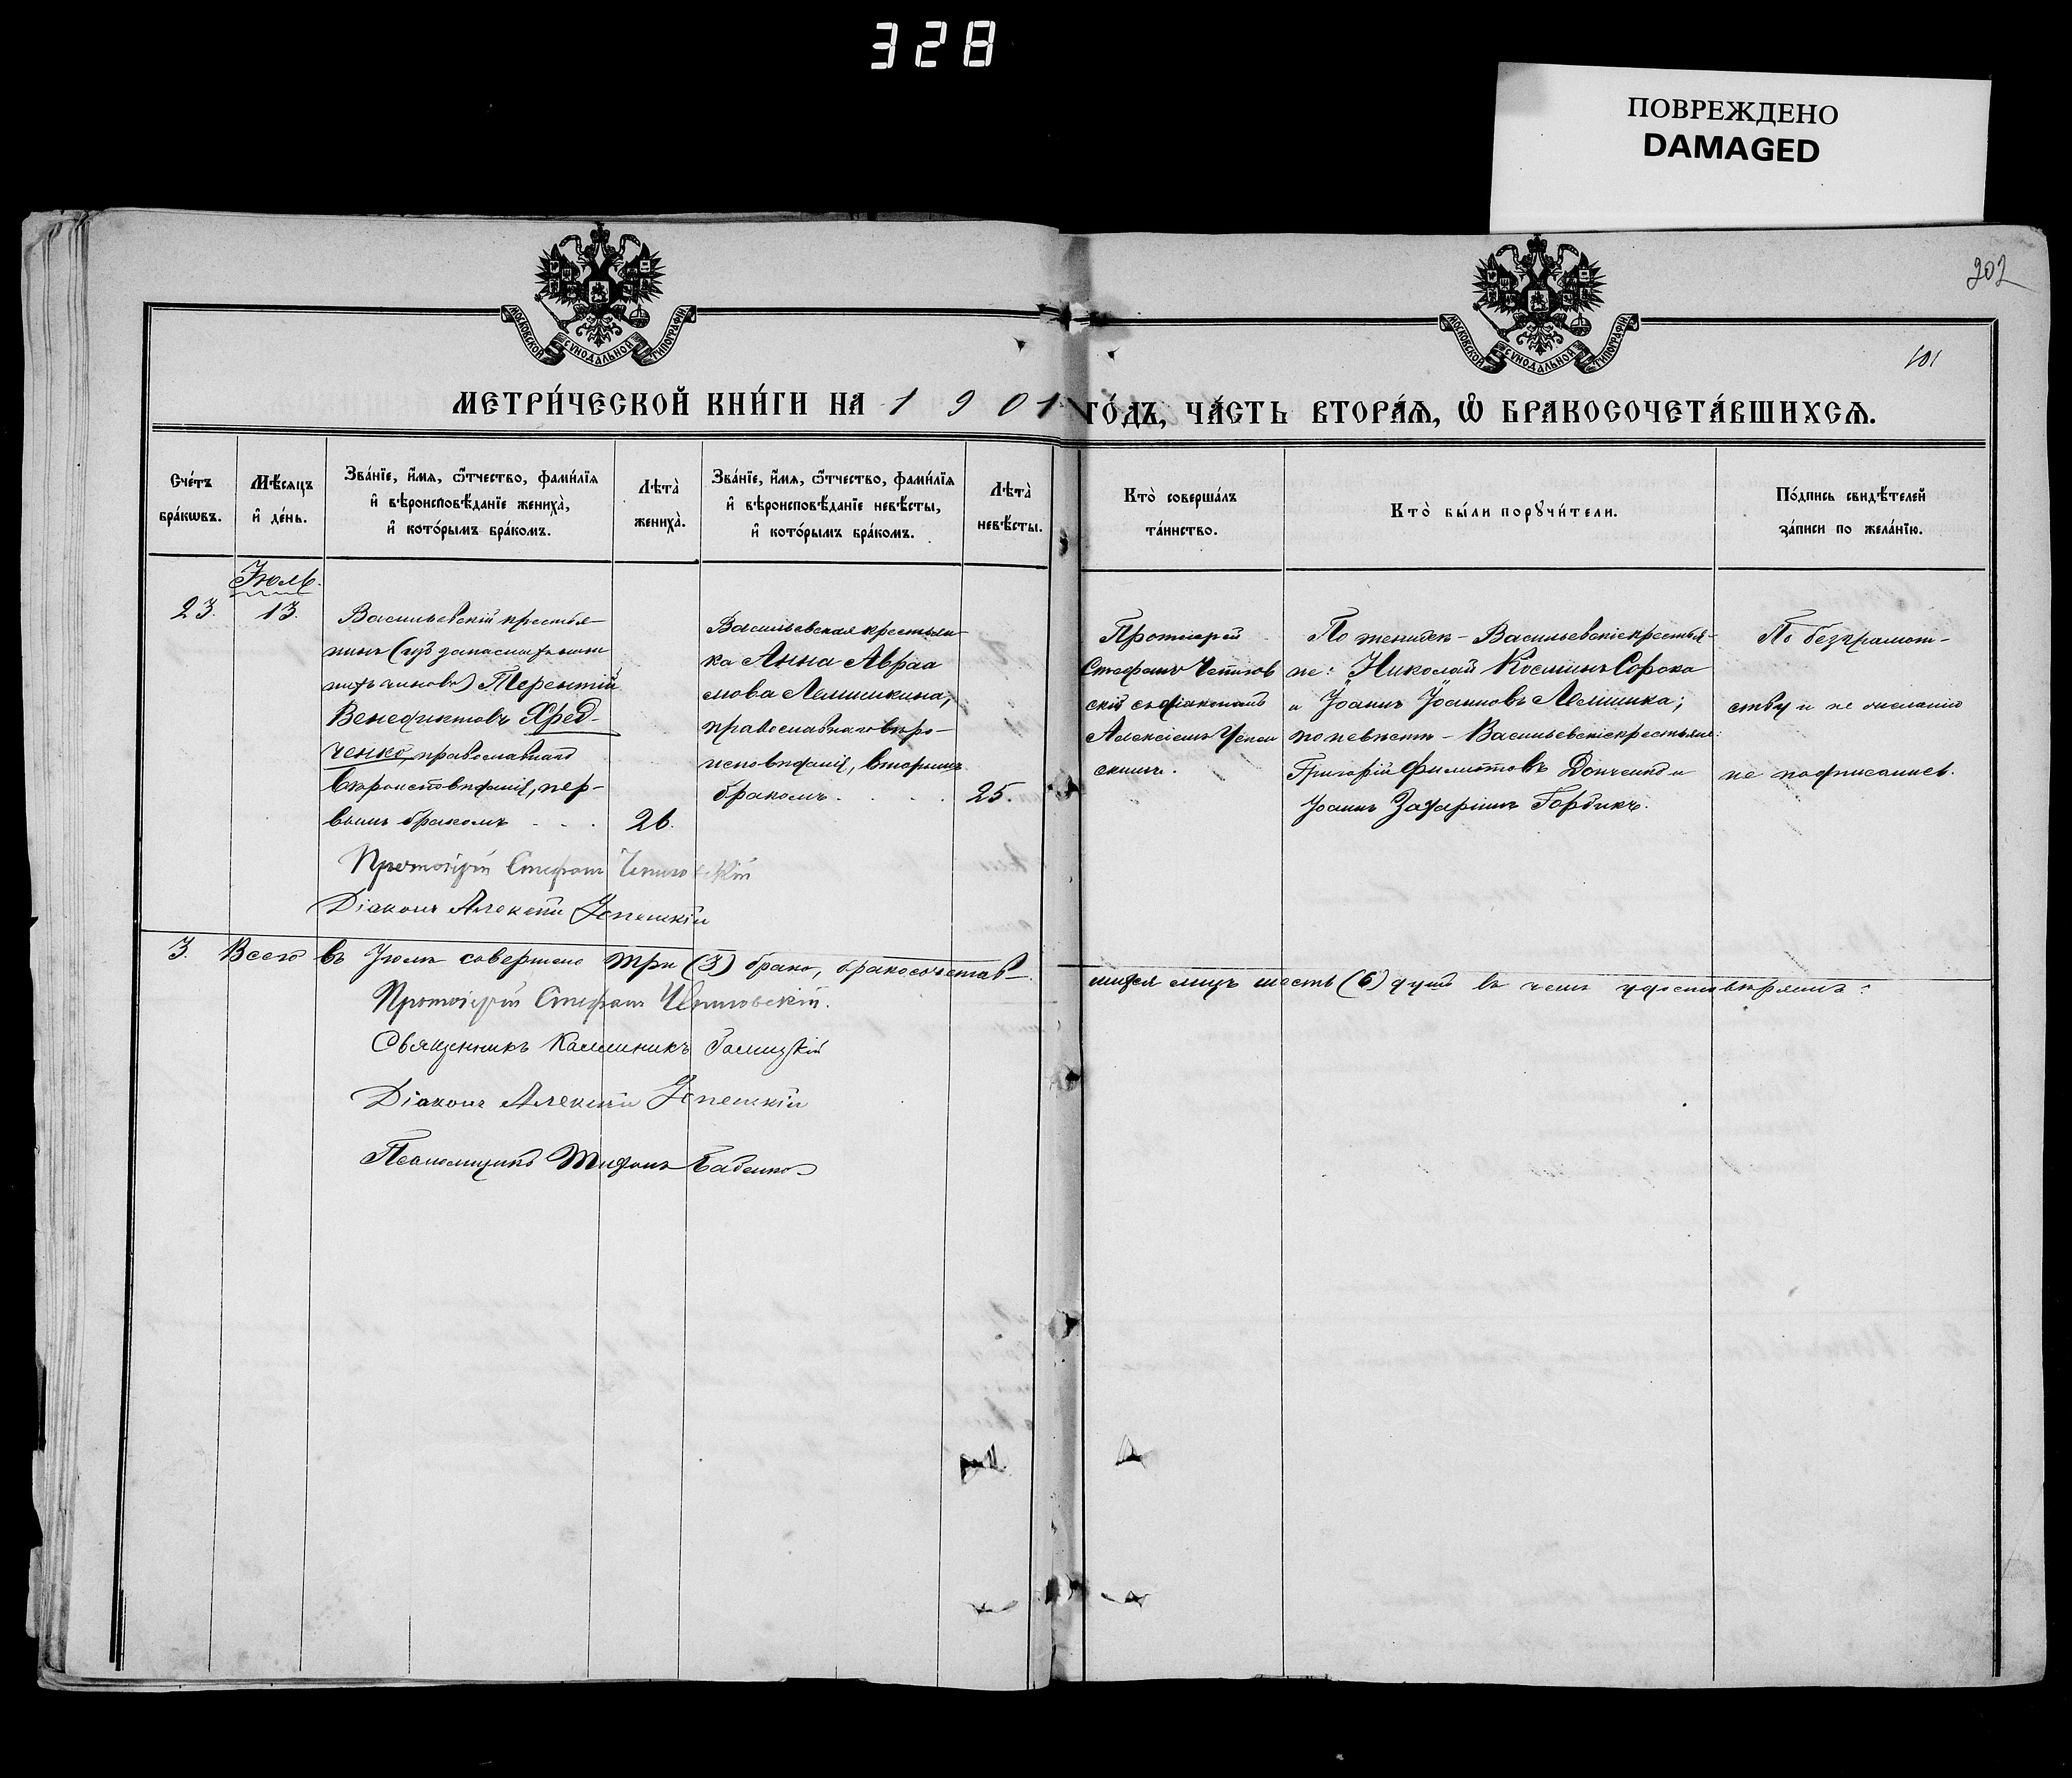 328
ПОВРЕЖДЕНО
DAMAGED
202
МОСКОВСКОЙ СѴНОДАЛЬНОЙ ТИПОГРАФІИ
МОСКОВСКОЙ СѴНОДАЛЬНОЙ ТИПОГРАФІИ
101
МЕТРИ́ЧЕСКОЙ КНИ́ГИ НА 1901 ГО́ДЪ, ЧА́СТЬ ВТОРА́Ѧ, Ѡ҆ БРАКОСОЧЕТА́ВШИХСѦ.
Сче́тъ
бра́кѡвъ.
Мѣ́сяцъ
и҆ де́нь.
Зва́нїе, и҆́мя, ѻ҆́тчество, фами́лїя
и҆ вѣроисповѣ́данїе жениха̀,
и҆ кото́рымъ бра́комъ.
Лѣта̀
жениха̀.
Зва́нїе, и҆́мя, ѻ҆́тчество, фами́лїя
и҆ вѣроисповѣ́данїе невѣ́сты,
и҆ кото́рымъ бра́комъ.
Лѣта̀
невѣ́сты.
Кто̀ соверша́лъ
та́инство.
Кто̀ бы́ли порꙋчи́тели.
По́дпись свидѣ́телей
за́писи по жела́нїю.
Іюль.
23.
13.
Васильевскій крестья-
нинъ (изъ запасныхъ ниж
нихъ чиновъ) Терентій
Венедиктовъ Хред-
ченко, православнаго
вѣроисповѣданія, пер-
вымъ бракомъ . . .
26.
Васильевская крестьян
ка Анна Авраа
мова Лемишкина,
православнаго вѣро-
исповѣданія, вторымъ
бракомъ . . . .
25.
Протоіерей
Стефанъ
скій съ діакономъ
Алексіемъ Успен
скимъ.
По женихѣ - Васильевскіе крестья-
не: Николай Косминъ Сорока
и Іоаннъ Іоанновъ Лемишка;
по невѣстѣ - Васильевскіе крестьяне:
Григорій Филиповъ Донченко и
Іоаннъ Захаріинъ Гордикъ.
По безграмот-
ству и не желанію
не подписались.
Протоіерей Стефанъ
Діаконъ Алексій Успенскій
3. Всего въ Іюлѣ совершено три (3) брака, бракосочетав-
шихся лицъ шесть (6) душъ въ чемъ удостовѣряемъ:
Протоіерей Стефанъ
Священникъ Каллиникъ Галицкій
Діаконъ Алексій Успенскій
Псаломщикъ Тихонъ Бабенко